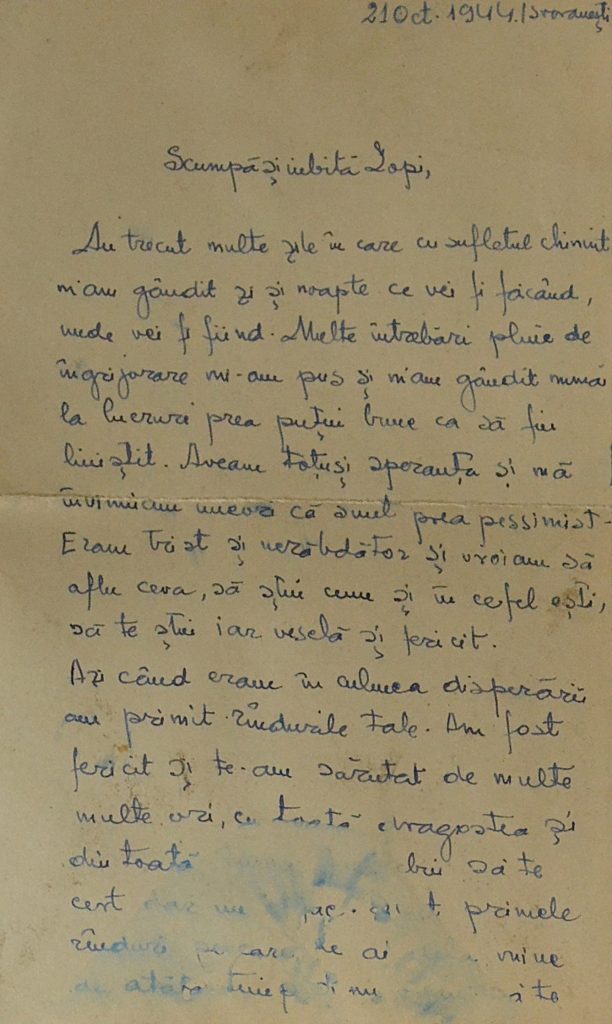 21 Oct. 1944./
Scumpă și iubită Zopi,
Au trecut multe zile în care cu sufletul chinuit
m'am gândit zi și noapte ce vei fi făcând,
unde vei fi fiind. Multe întrebări pline de
îngrijorare mi-am pus și m'am gândit numai
la lucruri prea puțin bune ca să fiu
liniștit. Aveam totuși speranța și mă
învinuiam uneori că sunt prea pessimist.
Eram trist și nerăbdător și vroiam să
aflu ceva, să știu cum și în ce fel ești,
să te știu iar veselă și fericit.
Azi când eram în culmea disperării
am primit rîndurile tale. Am fost
fericit și te-am sărutat de multe
multe ori, cu toată dragostea și
din toată să te
cert dar nu primele
rînduri pe care le ai mine
de atâta timp și nu te